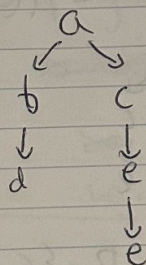 a
b c
d e
e